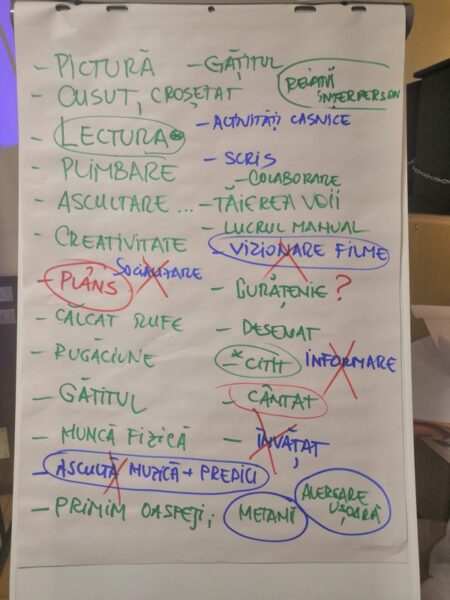 - PICTURĂ
- CUSUT, CROȘETAT
- LECTURA
- PLIMBARE
- ASCULTARE ...
- CREATIVITATE
SOCIALIZARE
- PLÂNS
- CĂLCAT RUFE
- RUGĂCIUNE
- GĂTITUL
- MUNCĂ FIZICĂ
- ASCULTĂ MUZICĂ + PREDICI
- PRIMIM OASPEȚI;
- GĂTITUL
RELAȚII
INTERPERSON
- ACTIVITĂȚI CASNICE
- SCRIS
- COLABORARE
- TĂIEREA VOII
- LUCRUL MANUAL
- VIZIONARE FILME
- CURĂȚENIE ?
- DESENAT
- * CITIT
INFORMARE
- CÂNTAT
- ÎNVĂȚAT
METANII
ALERGARE
UȘOARĂ